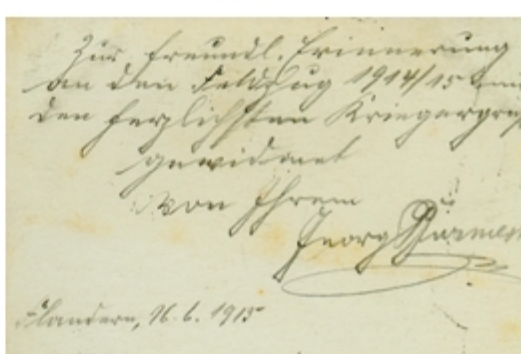 Zur freundl. Erinnerung
an den Feldzug 1914/15
den herzlichsten
gewidmet
von Ihrem
Georg
Flandern, 16.6.1915